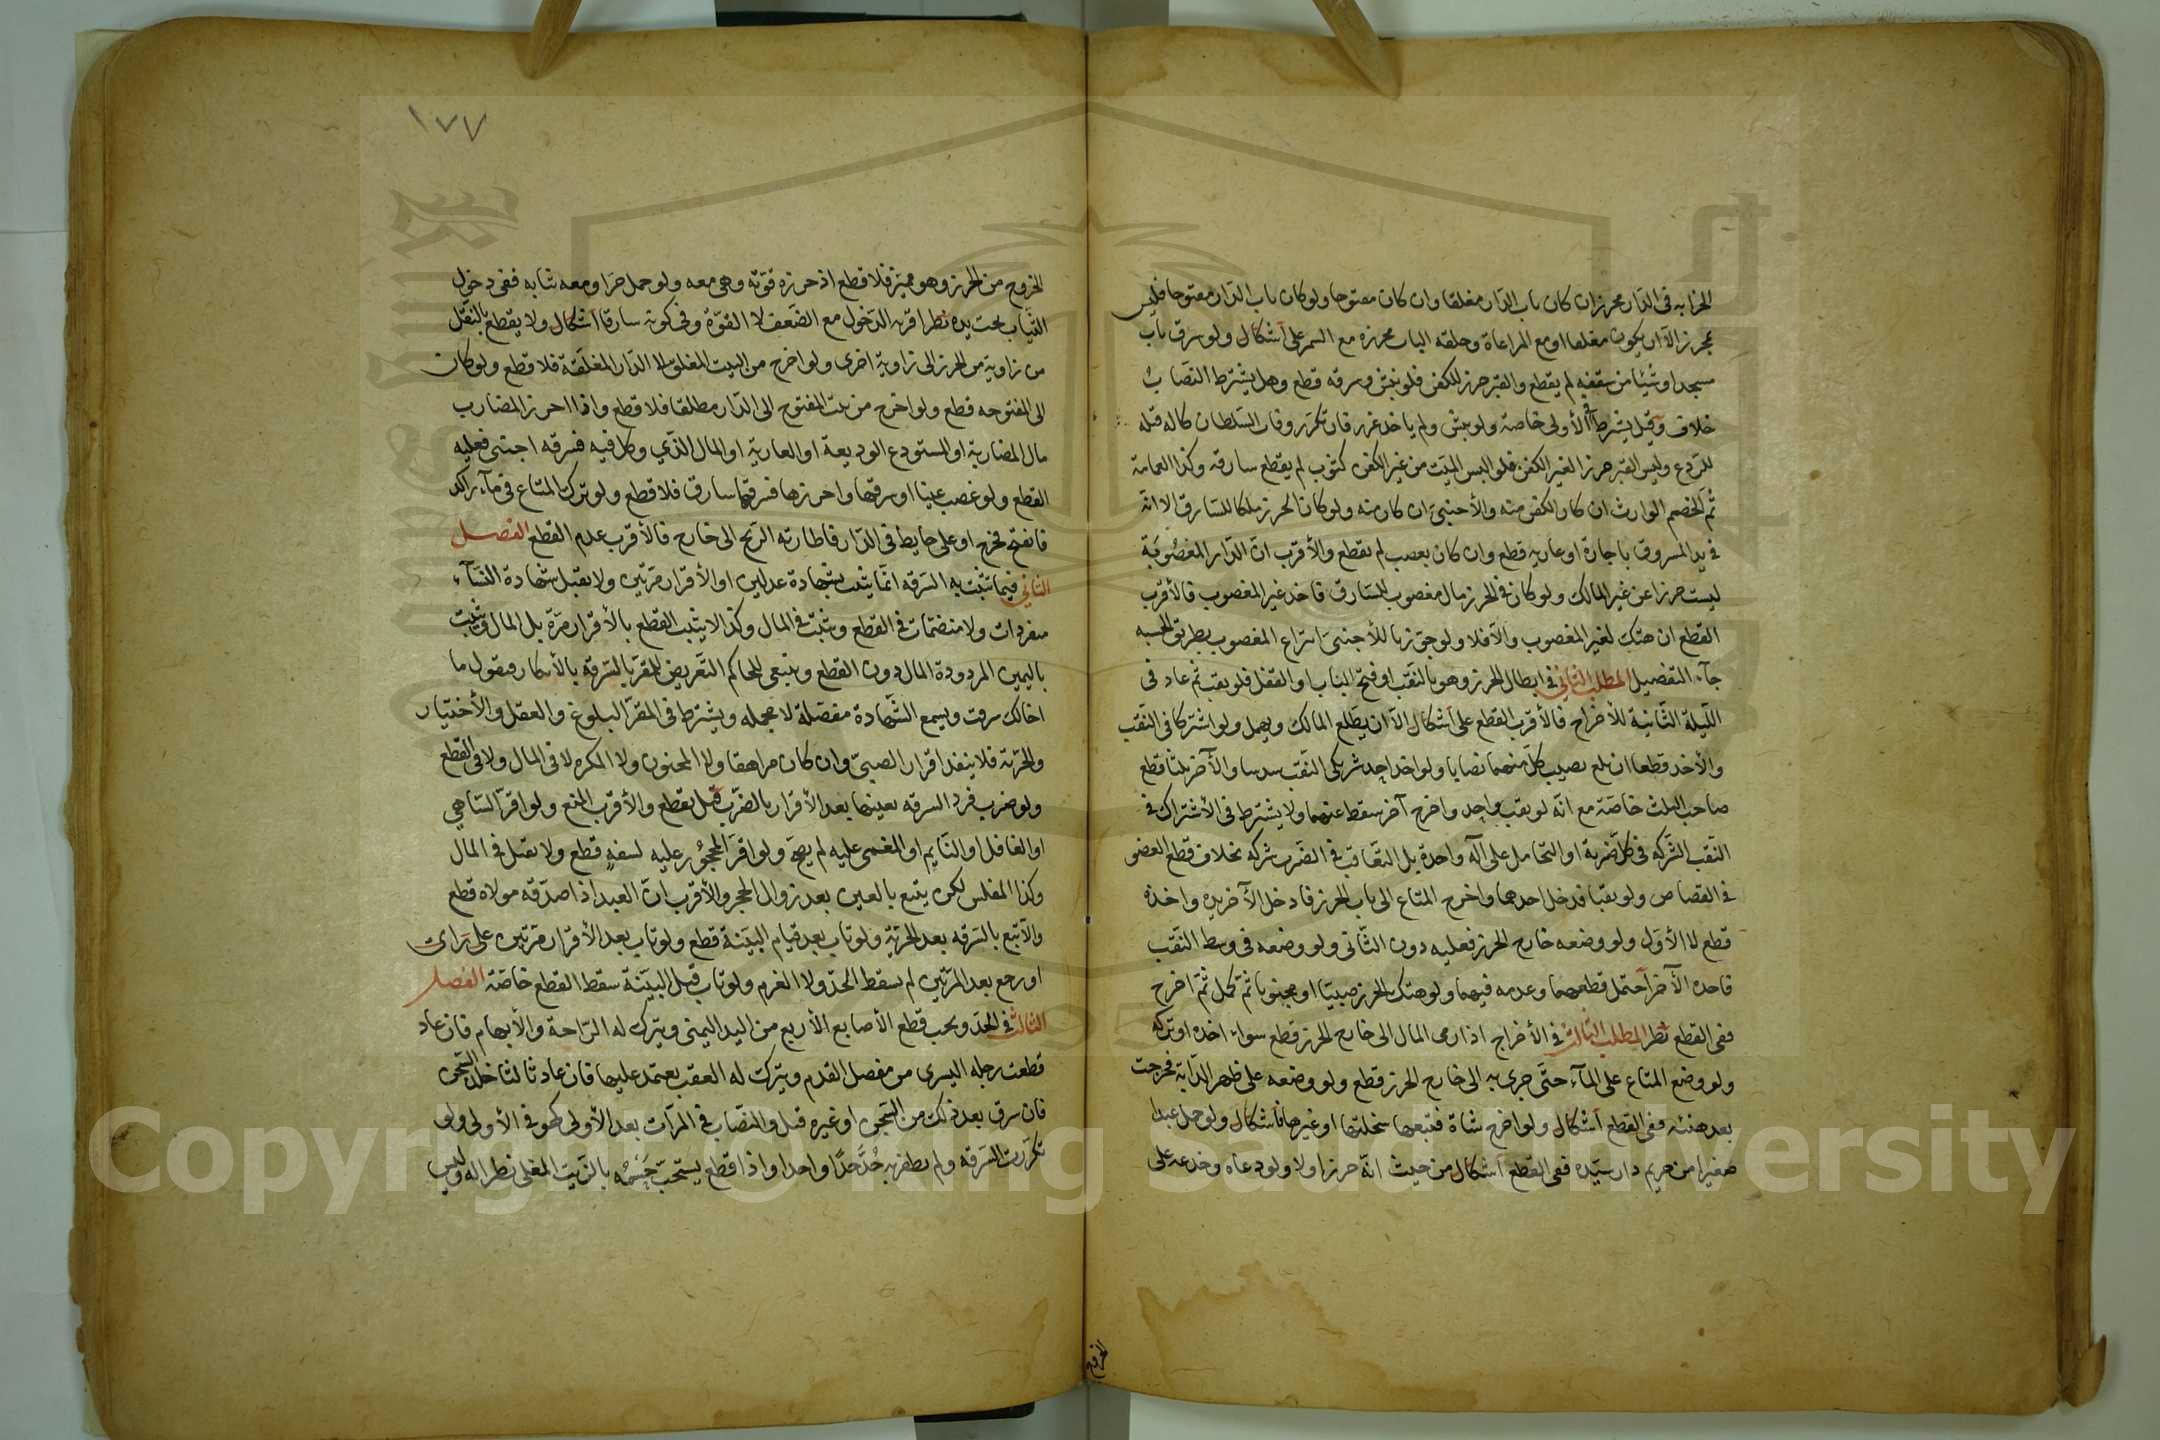 الخزانه فى الدار محرز ان كان باب الدار مغلقا وان كان مفتوحا ولو كان باب الدار مفتوحا فليس
بمحرز الا ان يكون مغلقا او مع المراعاة وحلقه الباب محرزه مع السمر على اشكال ولو سرق باب
مسجد او شيئا من سقفه لم يقطع والقبر حرز للكفن فلو نبش وسرقه قطع وهل يشترط النصاب
خلاف وقيل يشترط فى الأولى خاصة ولو نبش ولم ياخذ عزر فان تكرر وفات السلطان كان له قتله
للردع وليس القبر حرزا لغير الكفن فلو البس الميت من غير الكفن كثوب لم يقطع سارقه وكذا العمامة
ثم الخصم الوارث ان كان الكفن منه والأجنبي ان كان منه ولو كان الحرز ملكا للسارق الا انه
فى يد المسروق باجارة او عاريه قطع وان كان بغصب لم يقطع والأقرب ان الدار المغصوبة
ليست حرزا عن غير المالك ولو كان فى الحرز مال مغصوب للسارق فاخذ غير المغصوب فالأقرب
القطع ان هتك لغير المغصوب والا فلا ولو جوزنا للأجنبي انتزاع المغصوب بطريق الحسبه
جاء التفصيل المطلب الثاني فى ابطال الحرز وهو بالنقب او فتح الباب او القفل فلو نقب ثم عاد فى
الليلة الثانية للأخراج فالأقرب القطع على اشكال الا ان يطلع المالك ويهمل ولو اشتركا فى النقب
والأخذ قطعا ان بلغ نصيب كل منهما نصابا ولو اخذ احد شريكى النقب سدسا والآخر ثلثا قطع
صاحب الثلث خاصة مع انه لو نقب واحد واخرج آخر سقط عنهما ولا يشترط فى الأشتراك فى
النقب الشركه فى كل ضربة او التحامل على آلة واحدة بل التعاقب فى الضرب شركه بخلاف قطع العضو
فى القصاص ولو نقبا فدخل احدهما واخرج المتاع الى باب الحرز فادخل الآخر يده واخذه
قطع لا الأول ولو وضعه خارج الحرز فعليه دون الثانى ولو وضعه فى وسط النقب
فاخذه الآخر احتمل قطعهما وعدمه فيهما ولو هتك الحرز صبيا او مجنونا ثم كمل ثم اخرج
ففى القطع نظر المطلب الثالث فى الأخراج اذا رمى المال الى خارج الحرز قطع سواء اخذه او تركه
ولو وضع المتاع على الماء حتى جرى به الى خارج الحرز قطع ولو وضعه على ظهر الدابة فخرجت
بعد هنئة ففى القطع اشكال ولو اخرج شاة فتبعها سخلتها او غيرها فاشكال ولو حمل عبدا
صغيرا من حريم دار سيده ففى القطع اشكال من حيث انه حرز او لا ولو دعاه وخدعه على
الخروج
١٧٧
الخروج من الحرز وهو مميز فلا قطع اذ حرزه قوته وهى معه ولو حمل حرا ومعه ثيابه ففى دخول
الثياب تحت يده نظر اقربه الدخول مع الضعف لا القوة وفى كونه سارقا اشكال ولا يقطع بالنقل
من زاوية من الحرز الى زاوية اخرى ولو اخرج من البيت المغلق الى الدار المغلقة فلا قطع ولو كان
الى المفتوحه قطع ولو اخرج من بيت المفتوح الى الدار مطلقا فلا قطع واذا احرز المضارب
مال المضاربة او المستودع الوديعة او العارية او المال الذي وكل فيه فسرقه اجنبى فعليه
القطع ولو غصب عينا او سرقها واحرزها فسرقها سارق فلا قطع ولو ترك المتاع فى ماء راكد
فانفتح فخرج او على حايط فى الدار فاطارته الريح الى خارج فالأقرب عدم القطع الفصل
الثانى فيما تثبت به السرقه انما يثبت بشهادة عدلين او الأقرار مرتين ولا يقبل شهادة النساء
منفردات ولا منضمات فى القطع ويثبت فى المال وكذا لا يثبت القطع بالأقرار مرة بل المال ويثبت
باليمين المردودة المال دون القطع وينبغى للحاكم التعريض للمقر بالسرقة بالأنكار فيقول ما
اخالك سرقت ويسمع الشهادة مفصلة لا مجمله ويشترط فى المقر البلوغ والعقل والأختيار
والحرية فلا ينفذ اقرار الصبى وان كان مراهقا ولا المجنون ولا المكره لا فى المال ولا فى القطع
ولو ضرب فرد السرقه بعينها بعد الأقرار بالضرب قيل يقطع والأقرب المنع ولو اقر الساهي
او الغافل او النايم او المغمى عليه لم يصح ولو اقر المحجور عليه لسفه قطع ولا يقبل فى المال
وكذا المفلس لكن يتبع بالعين بعد زوال الحجر والأقرب ان العبد اذا صدقه مولاه قطع
والا تبع بالسرقه بعد الحرية ولو تاب بعد قيام البينة قطع ولو تاب بعد الأقرار مرتين على راى
او رجع بعد المرتين لم يسقط الحد ولا الغرم ولو تاب قبل البينة سقط القطع خاصة الفصل
الثالث فى الحد ويجب قطع الأصابع الأربع من اليد اليمنى ويترك له الراحة والأبهام فان عاد
قطعت رجله اليسرى من مفصل القدم ويترك له العقب يعتمد عليها فان عاد ثالثا خلد السجن
فان سرق بعد ذلك من السجن او غيره قتل والنصاب فى المرات بعد الأولى كهو فى الأولى ولو
تكررت السرقه ولم يظفر به حد حدا واحدا واذا قطع يستحب حسمه بالزيت المغلى نظرا له وليس
Copyright © King Saud University